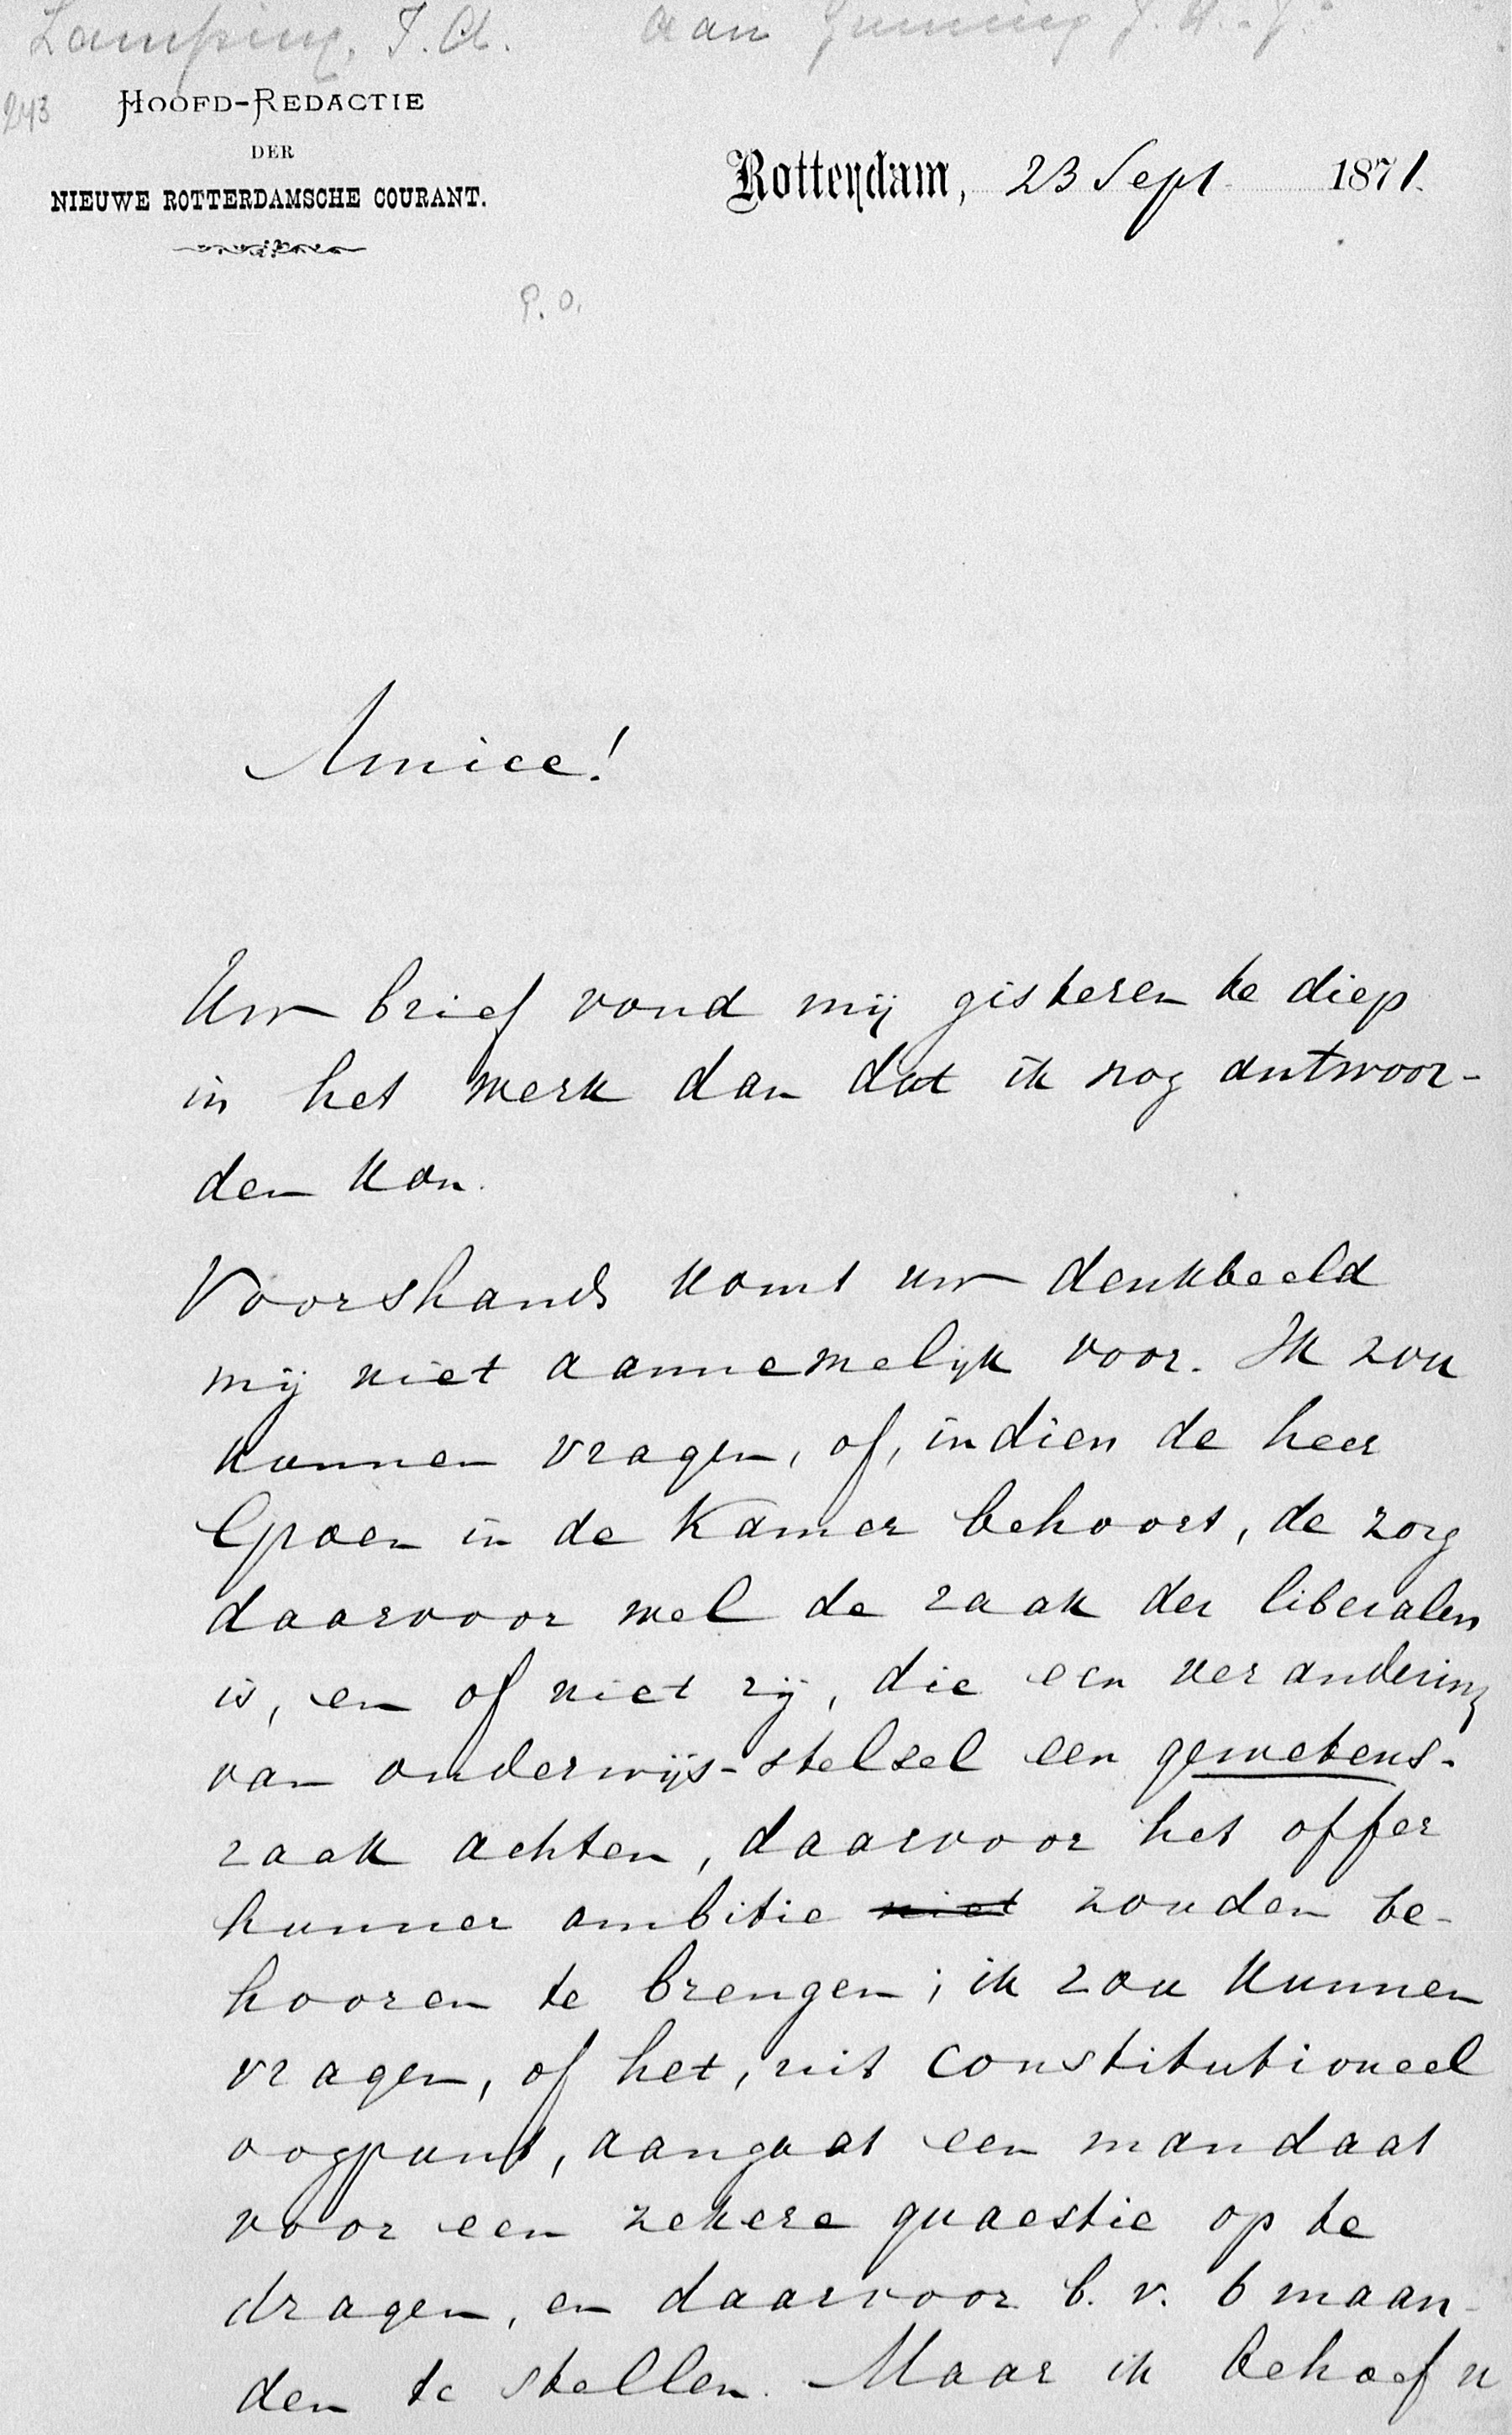 Lamping, J. A. aan Gunning J. H. Jr.
243
HOOFD-REDACTIE
DER
NIEUWE ROTTERDAMSCHE COURANT.
Rotterdam, 23 Sept. 1871.
P. O.
Amice!
Uw brief vond mij gisteren te diep
in het werk dan dat ik nog antwoor-
den kon.
Voorshands komt uw denkbeeld
mij niet aannemelijk voor. Ik zou
kunnen vragen, of, indien de heer
Groen in de Kamer behoort, de zorg
daarvoor wel de zaak der liberalen
is, en of niet zij, die een verandering
van onderwijs-stelsel een gewetens-
zaak achten, daarvoor het offer
hunner ambitie niet zouden be-
hooren te brengen; ik zou kunnen
vragen, of het, uit constitutioneel
oogpunt, aangaat een mandaat
voor een zekere quaestie op te
dragen, en daarvoor b. v. 6 maan-
den te stellen. Maar ik behoef u